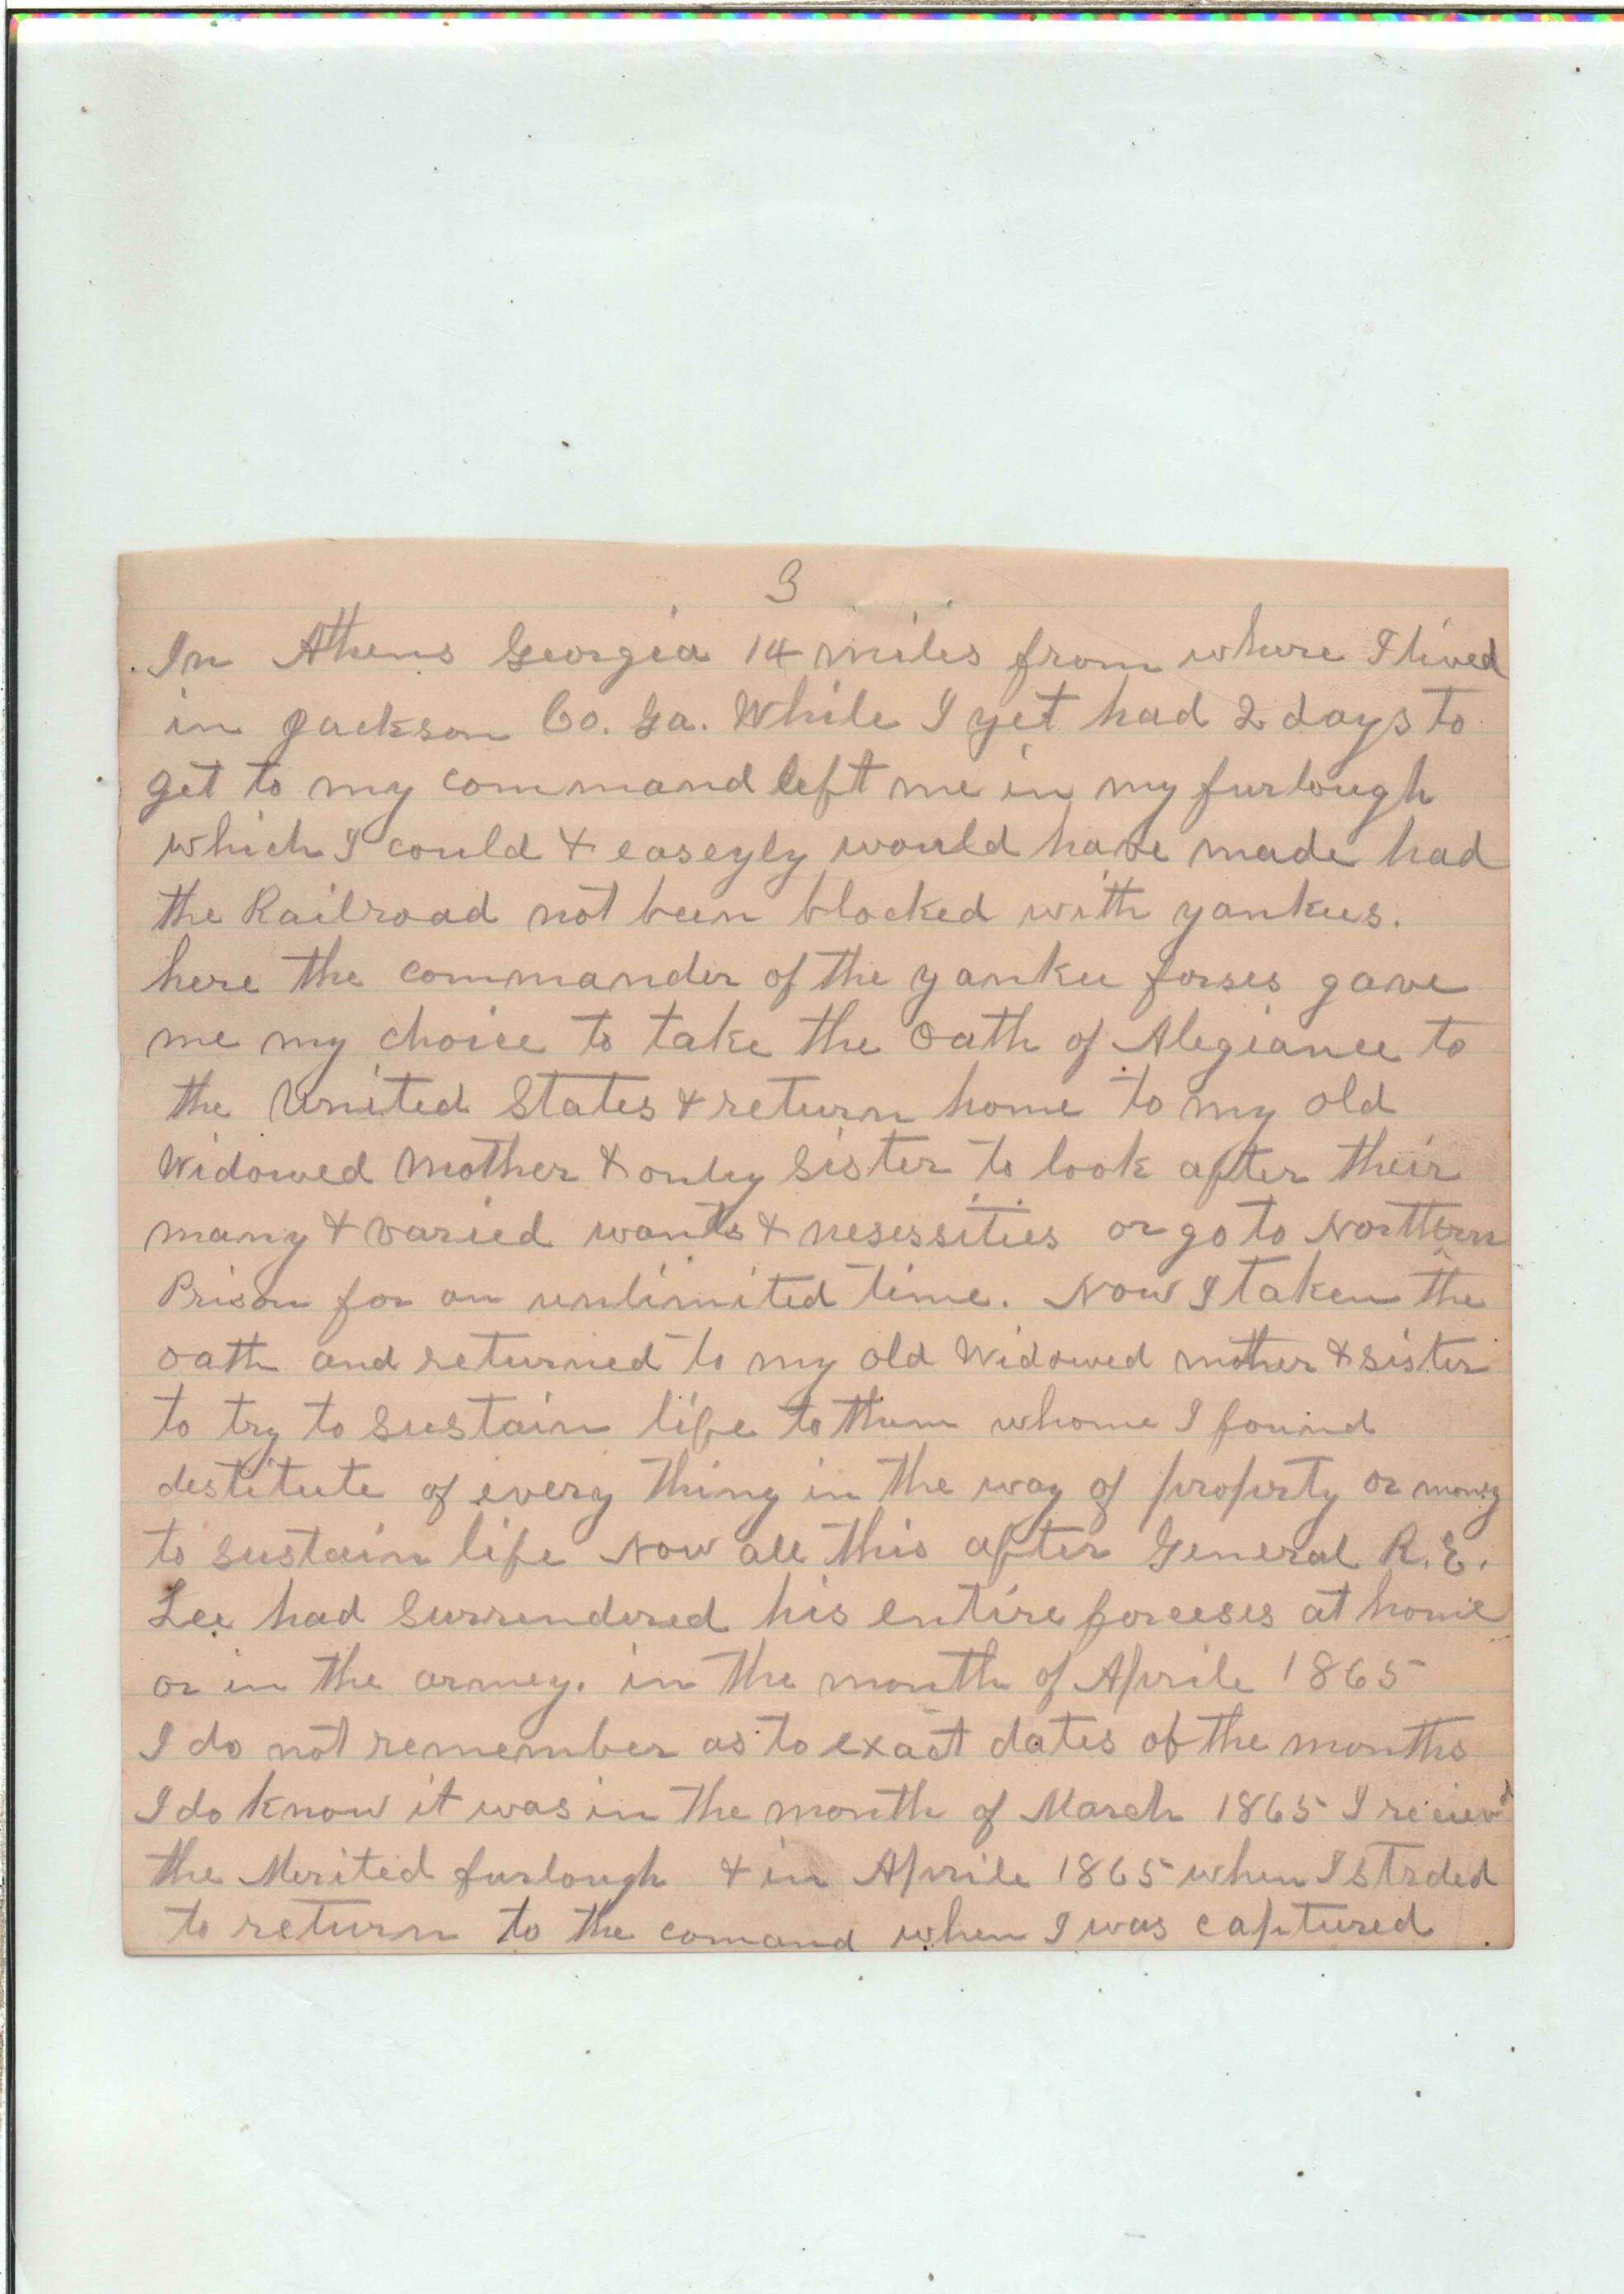 3
In Athens Georgia 14 miles from where I lived
in Jackson Co. Ga. While I yet had 2 days to
get to my command left me in my furlough
which I could & easeyly would have made had
the Railroad not been blocked with yankees.
here the commander of the yankee forses gave
me my choice to take the oath of Alegiance to
the United States & return home to my old
Widowed Mother & only sister to look after their
many & varied wants & nesessities or go to Northern
Prison for an unlimited time. Now I taken the
oath and returned to my old Widowed mother & sister
to try to sustain life to them whome I found
destitute of every thing in the way of property or money
to sustain life Now all this after General R.E.
Lee had Surrendered his entire forceses at home
or in the armey. in the month of Aprile 1865
I do not remember as to exact dates of the months
I do know it was in the month of March 1865 I reciev'd
the Merited furlough & in Aprile 1865 when I strded
to return to the comand when I was captured